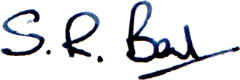 S. R. Bal